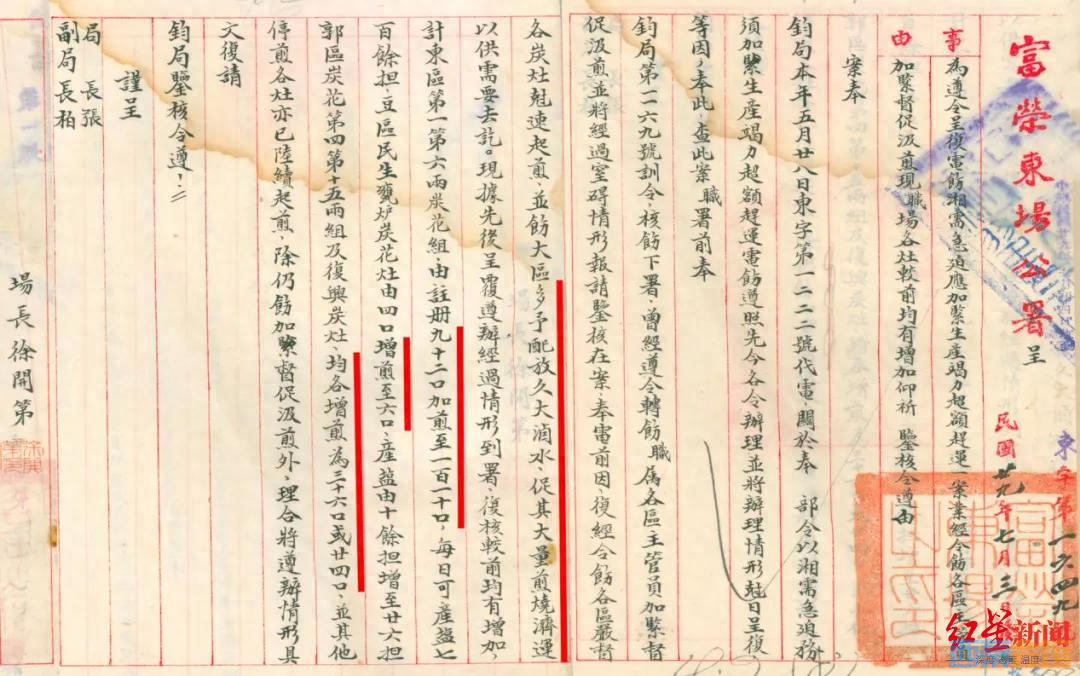 富榮東場公署 呈
東字第一六四九
民國廿九年七月三日
事由
為遵令呈復電飭湘需急迫應加緊生產竭力超額趕運一案業經令飭各區主管員
加緊督促汲煎現職場各灶較前均有增加仰祈 鑒核令遵由
案奉
鈞局本年五月廿八日東字第一二二二號代電、關於奉 部令以湘需急迫務
須加緊生產竭力超額趕運電飭遵照先今各令辦理並將辦理情形尅日呈復
等因、奉此、查此案職署前奉
鈞局第一二六九號訓令、核飭下署、曾經遵令轉飭職屬各區主管員加緊督
促汲煎並將經過窒碍情形報請鑒核在案、奉電前因、復經令飭各區嚴督
各炭灶尅速起煎、並飭大區多予配放久大滷水、促其大量煎燒濟運
以供需要去訖。現據先後呈覆遵辦經過情形到署、復核較前均有增加、
計東區第一第六兩炭花組、由註册九十二口加煎至一百一十口、每日可產鹽七
百餘担、豆區民生甕炉炭花灶由四口增煎至六口、產鹽由十餘担增至廿六担
郭區炭花第四第十五兩組及復興炭灶、均各增煎為三十六口或廿四口、並其他
停煎各灶亦已陸續起煎、除仍飭加緊督促汲煎外、理合將遵辦情形具
文復請
鈞局鑒核令遵！
謹呈
局長張
副局長柏
場長徐開第
红星新闻
深度 态度 温度